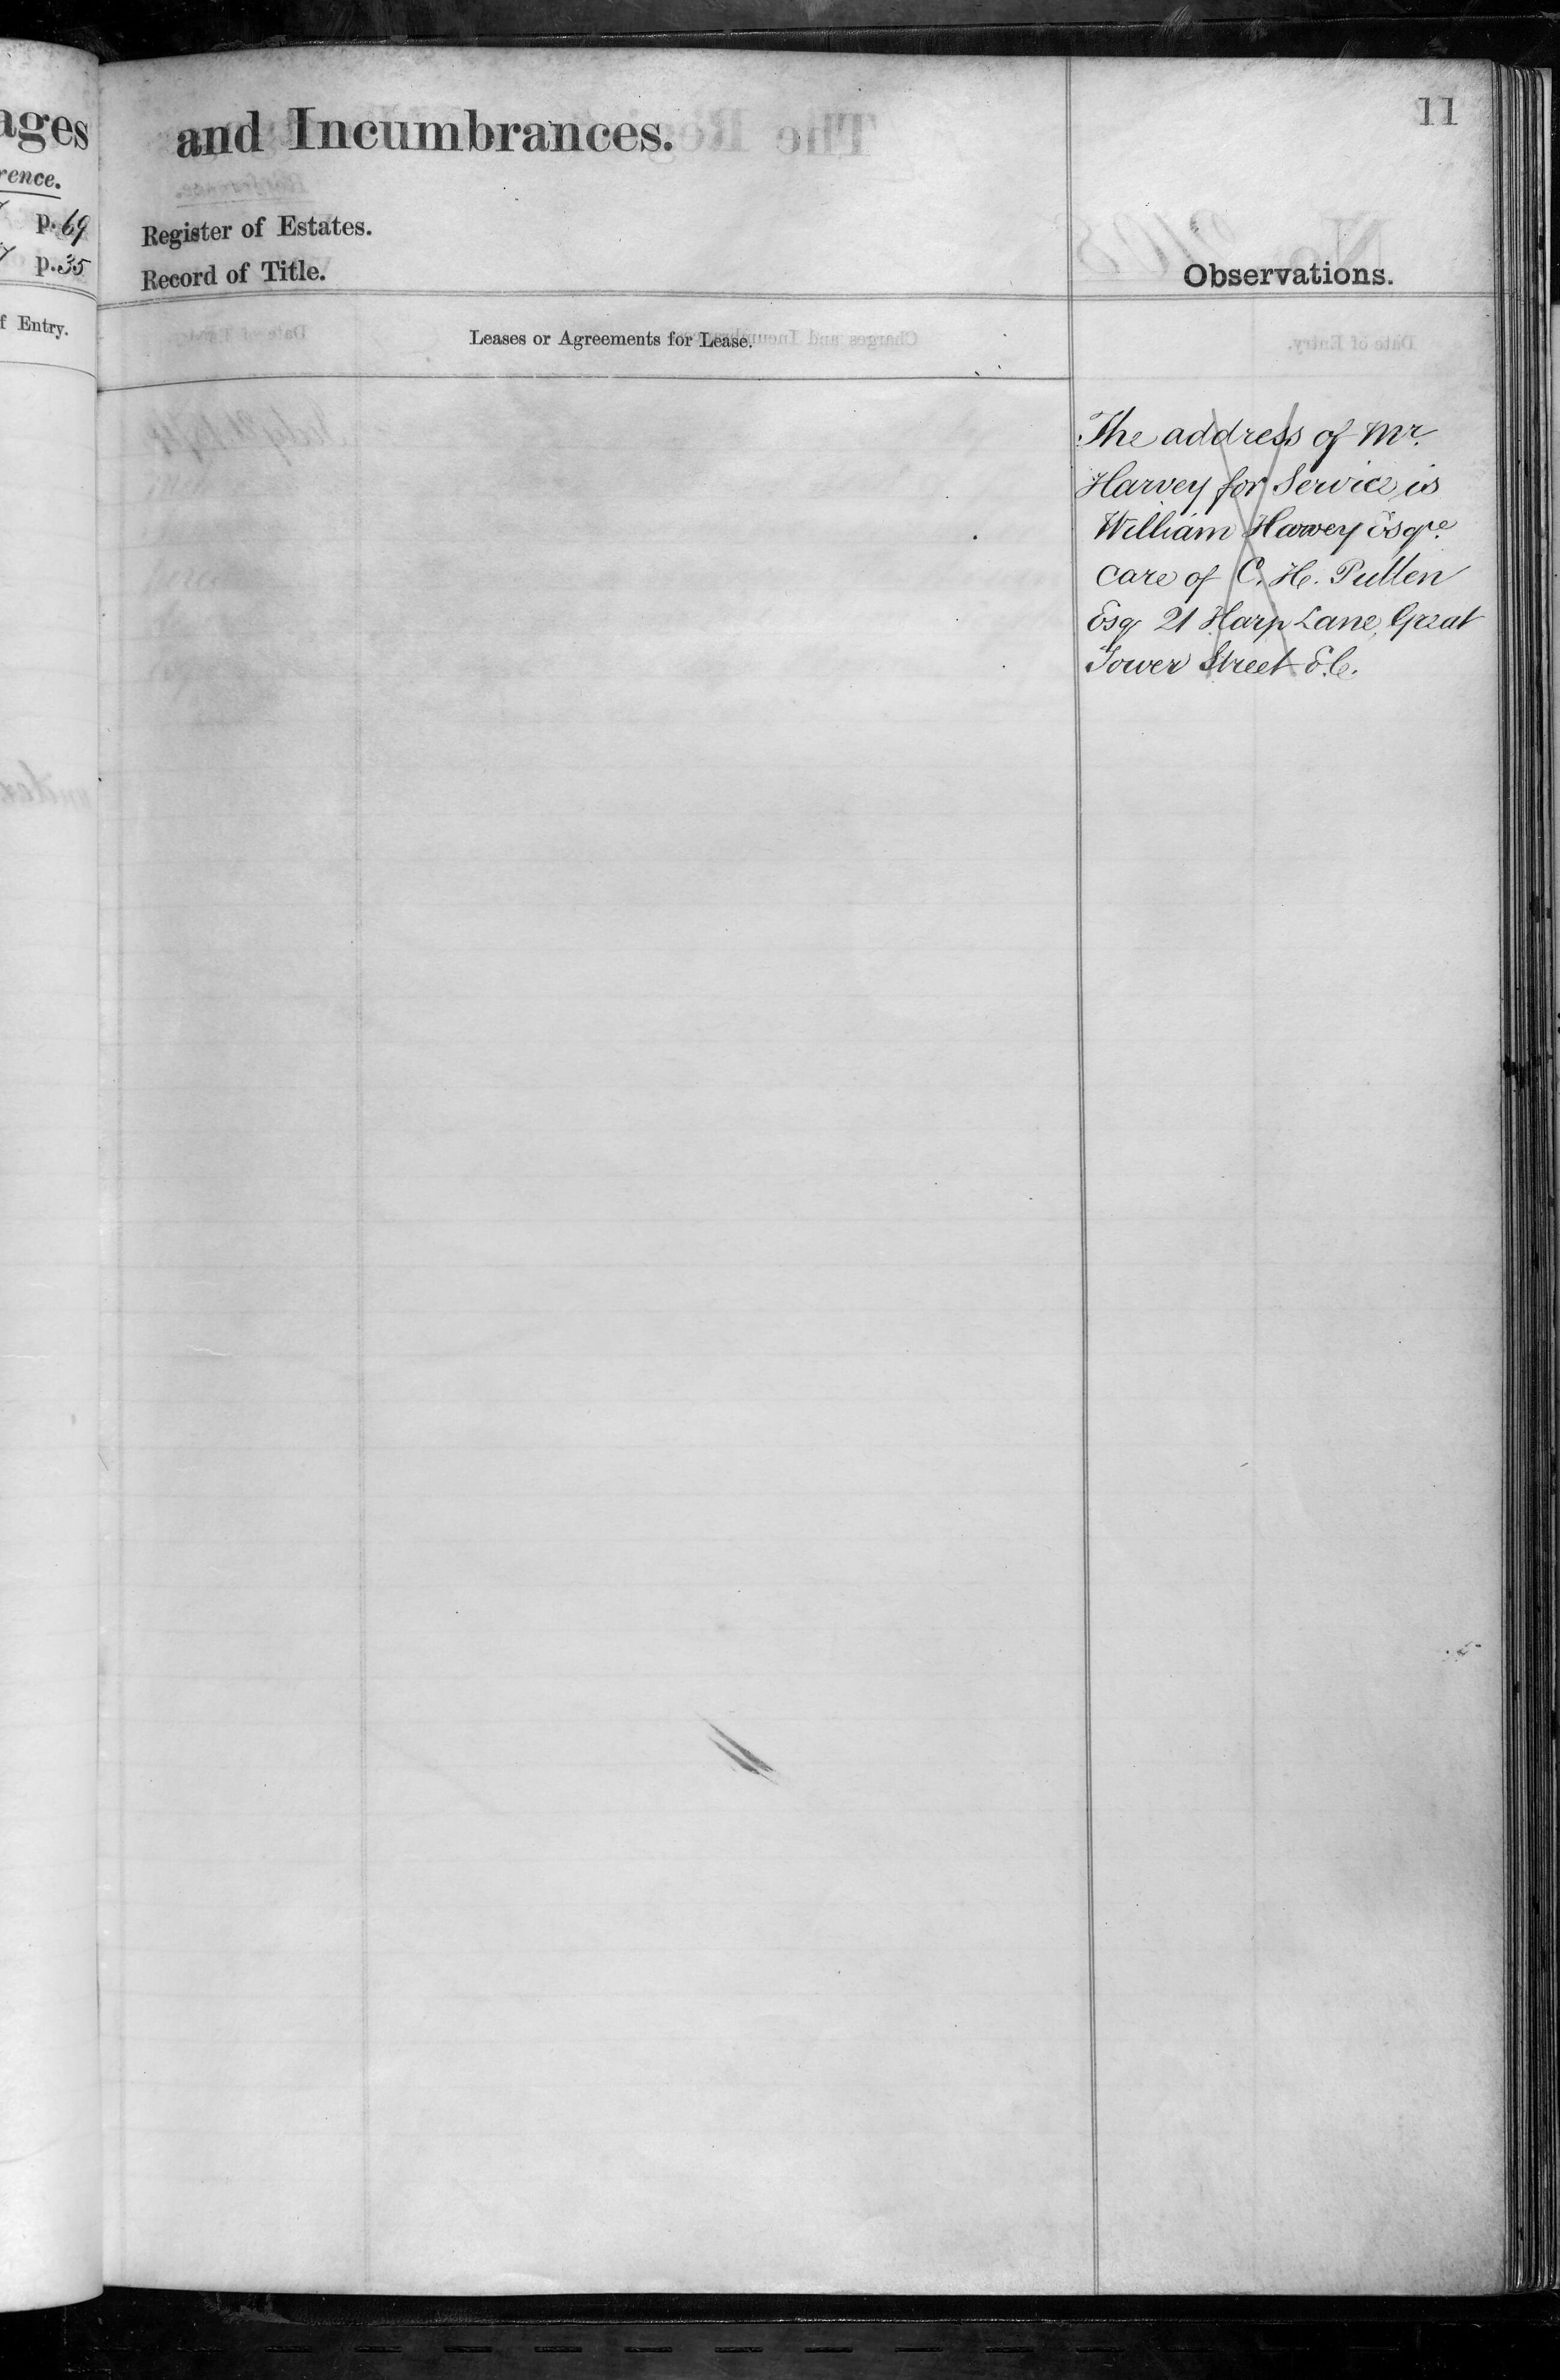 ages
rence.
p. 69
p. 35
f Entry.
11
and Incumbrances.
Register of Estates.
Record of Title.
Observations.
Leases or Agreements for Lease.
The address of Mr.
Harvey for Service is
William Harvey Esqre.
care of C. H. Pullen
Esq 21 Harp Lane, Great
Tower Street E.C.